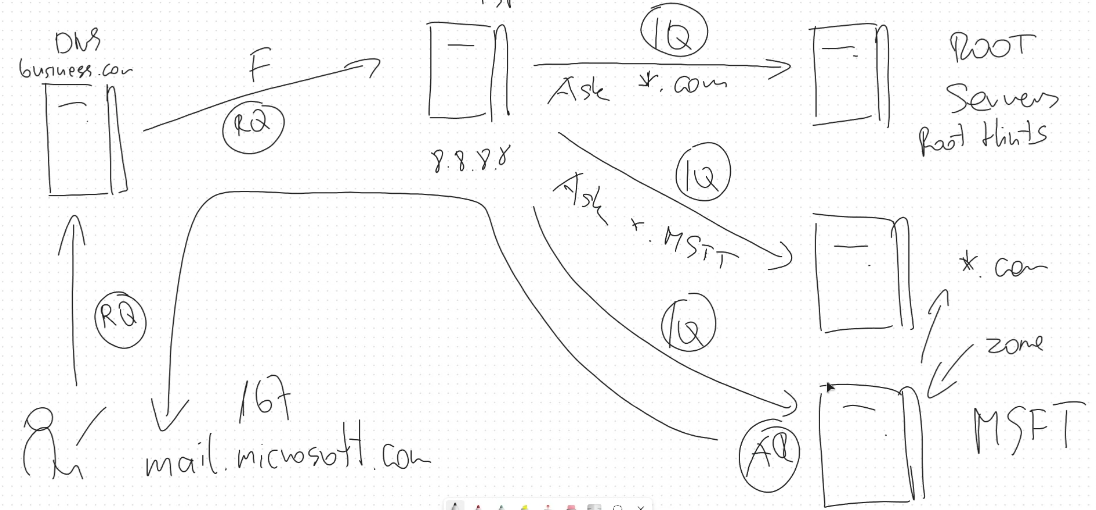 DNS
business.com
F
RQ
8.8.8.8
IQ
Ask *.com
ROOT
Servers
Root Hints
IQ
Ask *.MSTT
*.com
RQ
IQ
zone
167
mail.microsoft.com
AQ
MSFT